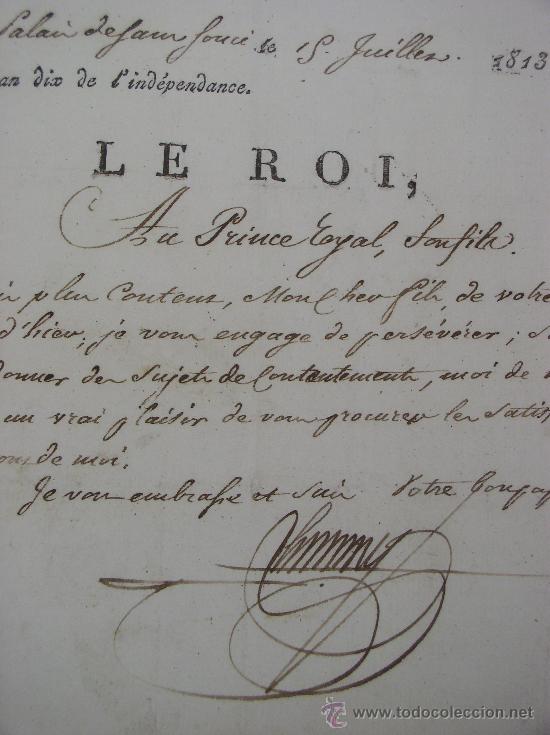 Palais de Sans Souci le 15 Juillet 1813
an dix de l'indépendance.
LE ROI,
Au Prince Royal, Son fils.
plus Content, Mon Cher fils, de votre
d'hier; je vous engage de persévérer;
donner des Sujets de Contentement, moi de
un vrai plaisir de vous procurer les Satis
de moi.
Je vous embrasse et suis Votre bon pap
Henry
todocoleccion
www.todocoleccion.net